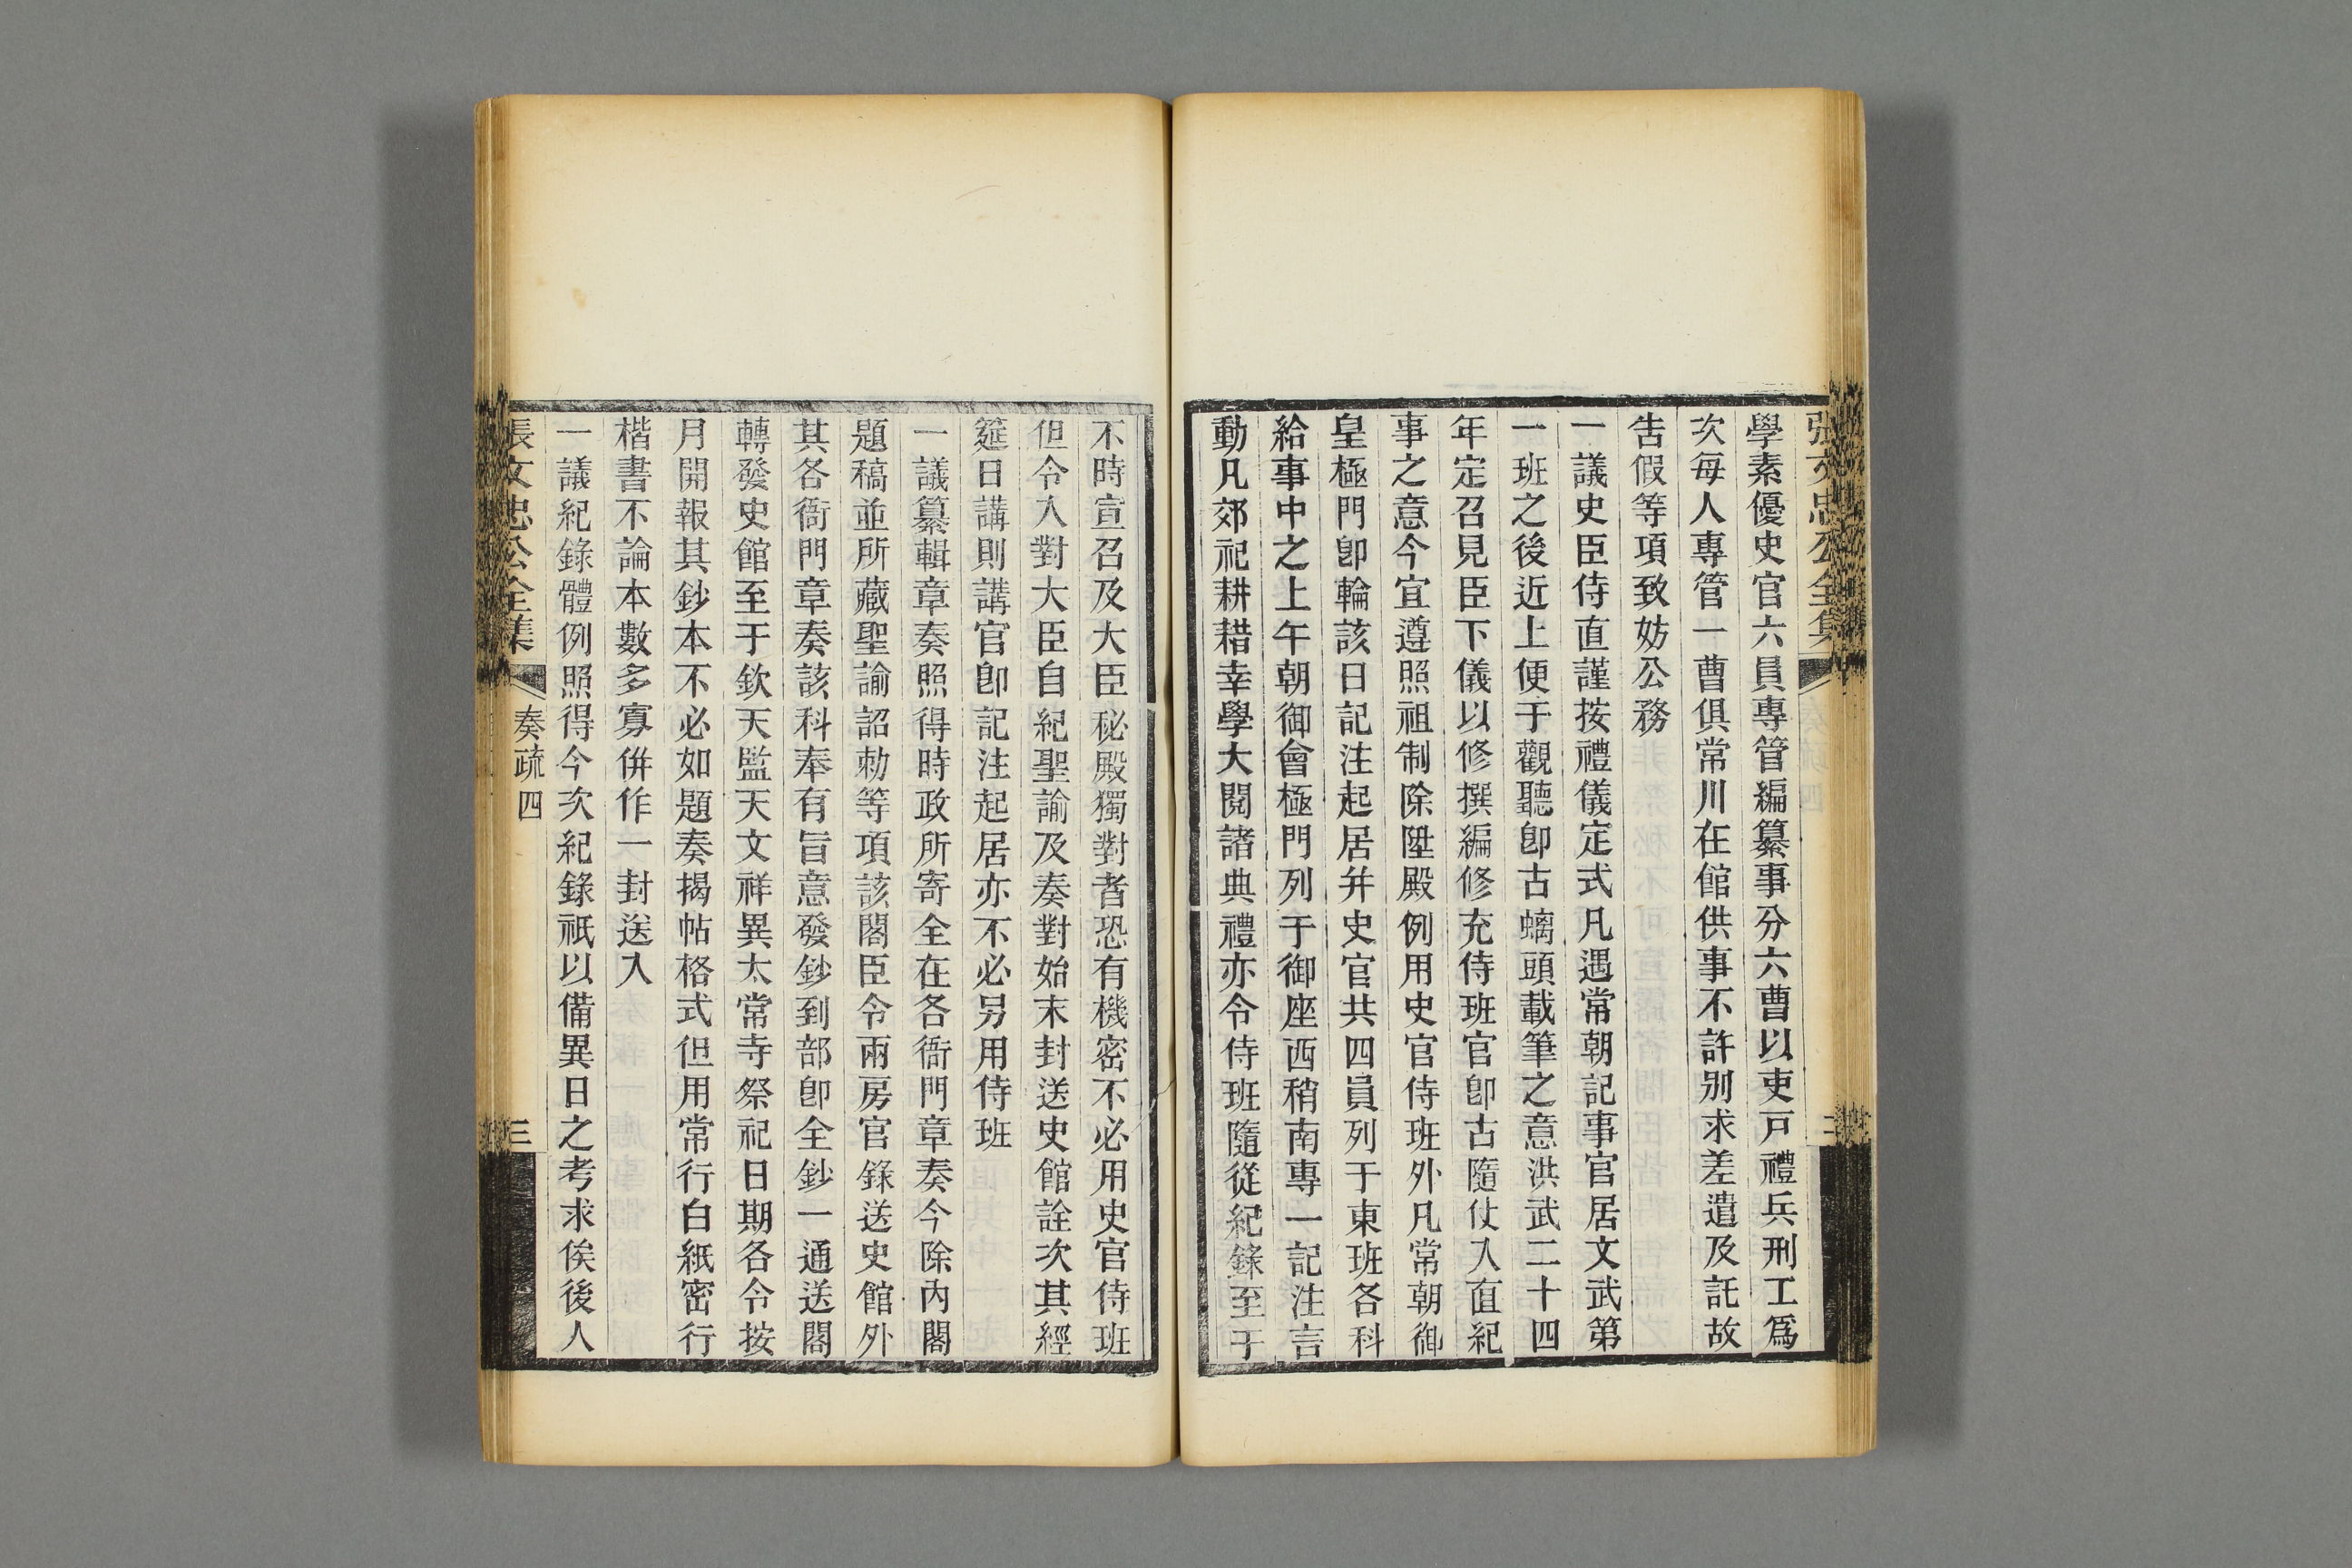 張文忠公全集
奏疏四
二
學素優史官六員專管編纂事分六曹以吏戸禮兵刑工爲
次每人專管一曹俱常川在館供事不許別求差遣及託故
告假等項致妨公務
一議史臣侍直謹按禮儀定式凡遇常朝記事官居文武第
一班之後近上便于觀聽卽古螭頭載筆之意洪武二十四
年定召見臣下儀以修撰編修充侍班官卽古隨仗入直紀
事之意今宜遵照祖制除陞殿例用史官侍班外凡常朝御
皇極門卽輪該日記注起居并史官共四員列于東班各科
給事中之上午朝御會極門列于御座西稍南專一記注言
動凡郊祀耕耤幸學大閱諸典禮亦令侍班隨從紀錄至于
不時宣召及大臣秘殿獨對者恐有機密不必用史官侍班
但令入對大臣自紀聖諭及奏對始末封送史館詮次其經
筵日講則講官卽記注起居亦不必另用侍班
一議纂輯章奏照得時政所寄全在各衙門章奏今除內閣
題稿並所藏聖諭詔勅等項該閣臣令兩房官錄送史館外
其各衙門章奏該科奉有旨意發鈔到部卽全鈔一通送閣
轉發史館至于欽天監天文祥異太常寺祭祀日期各令按
月開報其鈔本不必如題奏揭帖格式但用常行白紙密行
楷書不論本數多寡併作一封送入
一議紀錄體例照得今次紀錄祇以備異日之考求俟後人
張文忠公全集
奏疏四
三